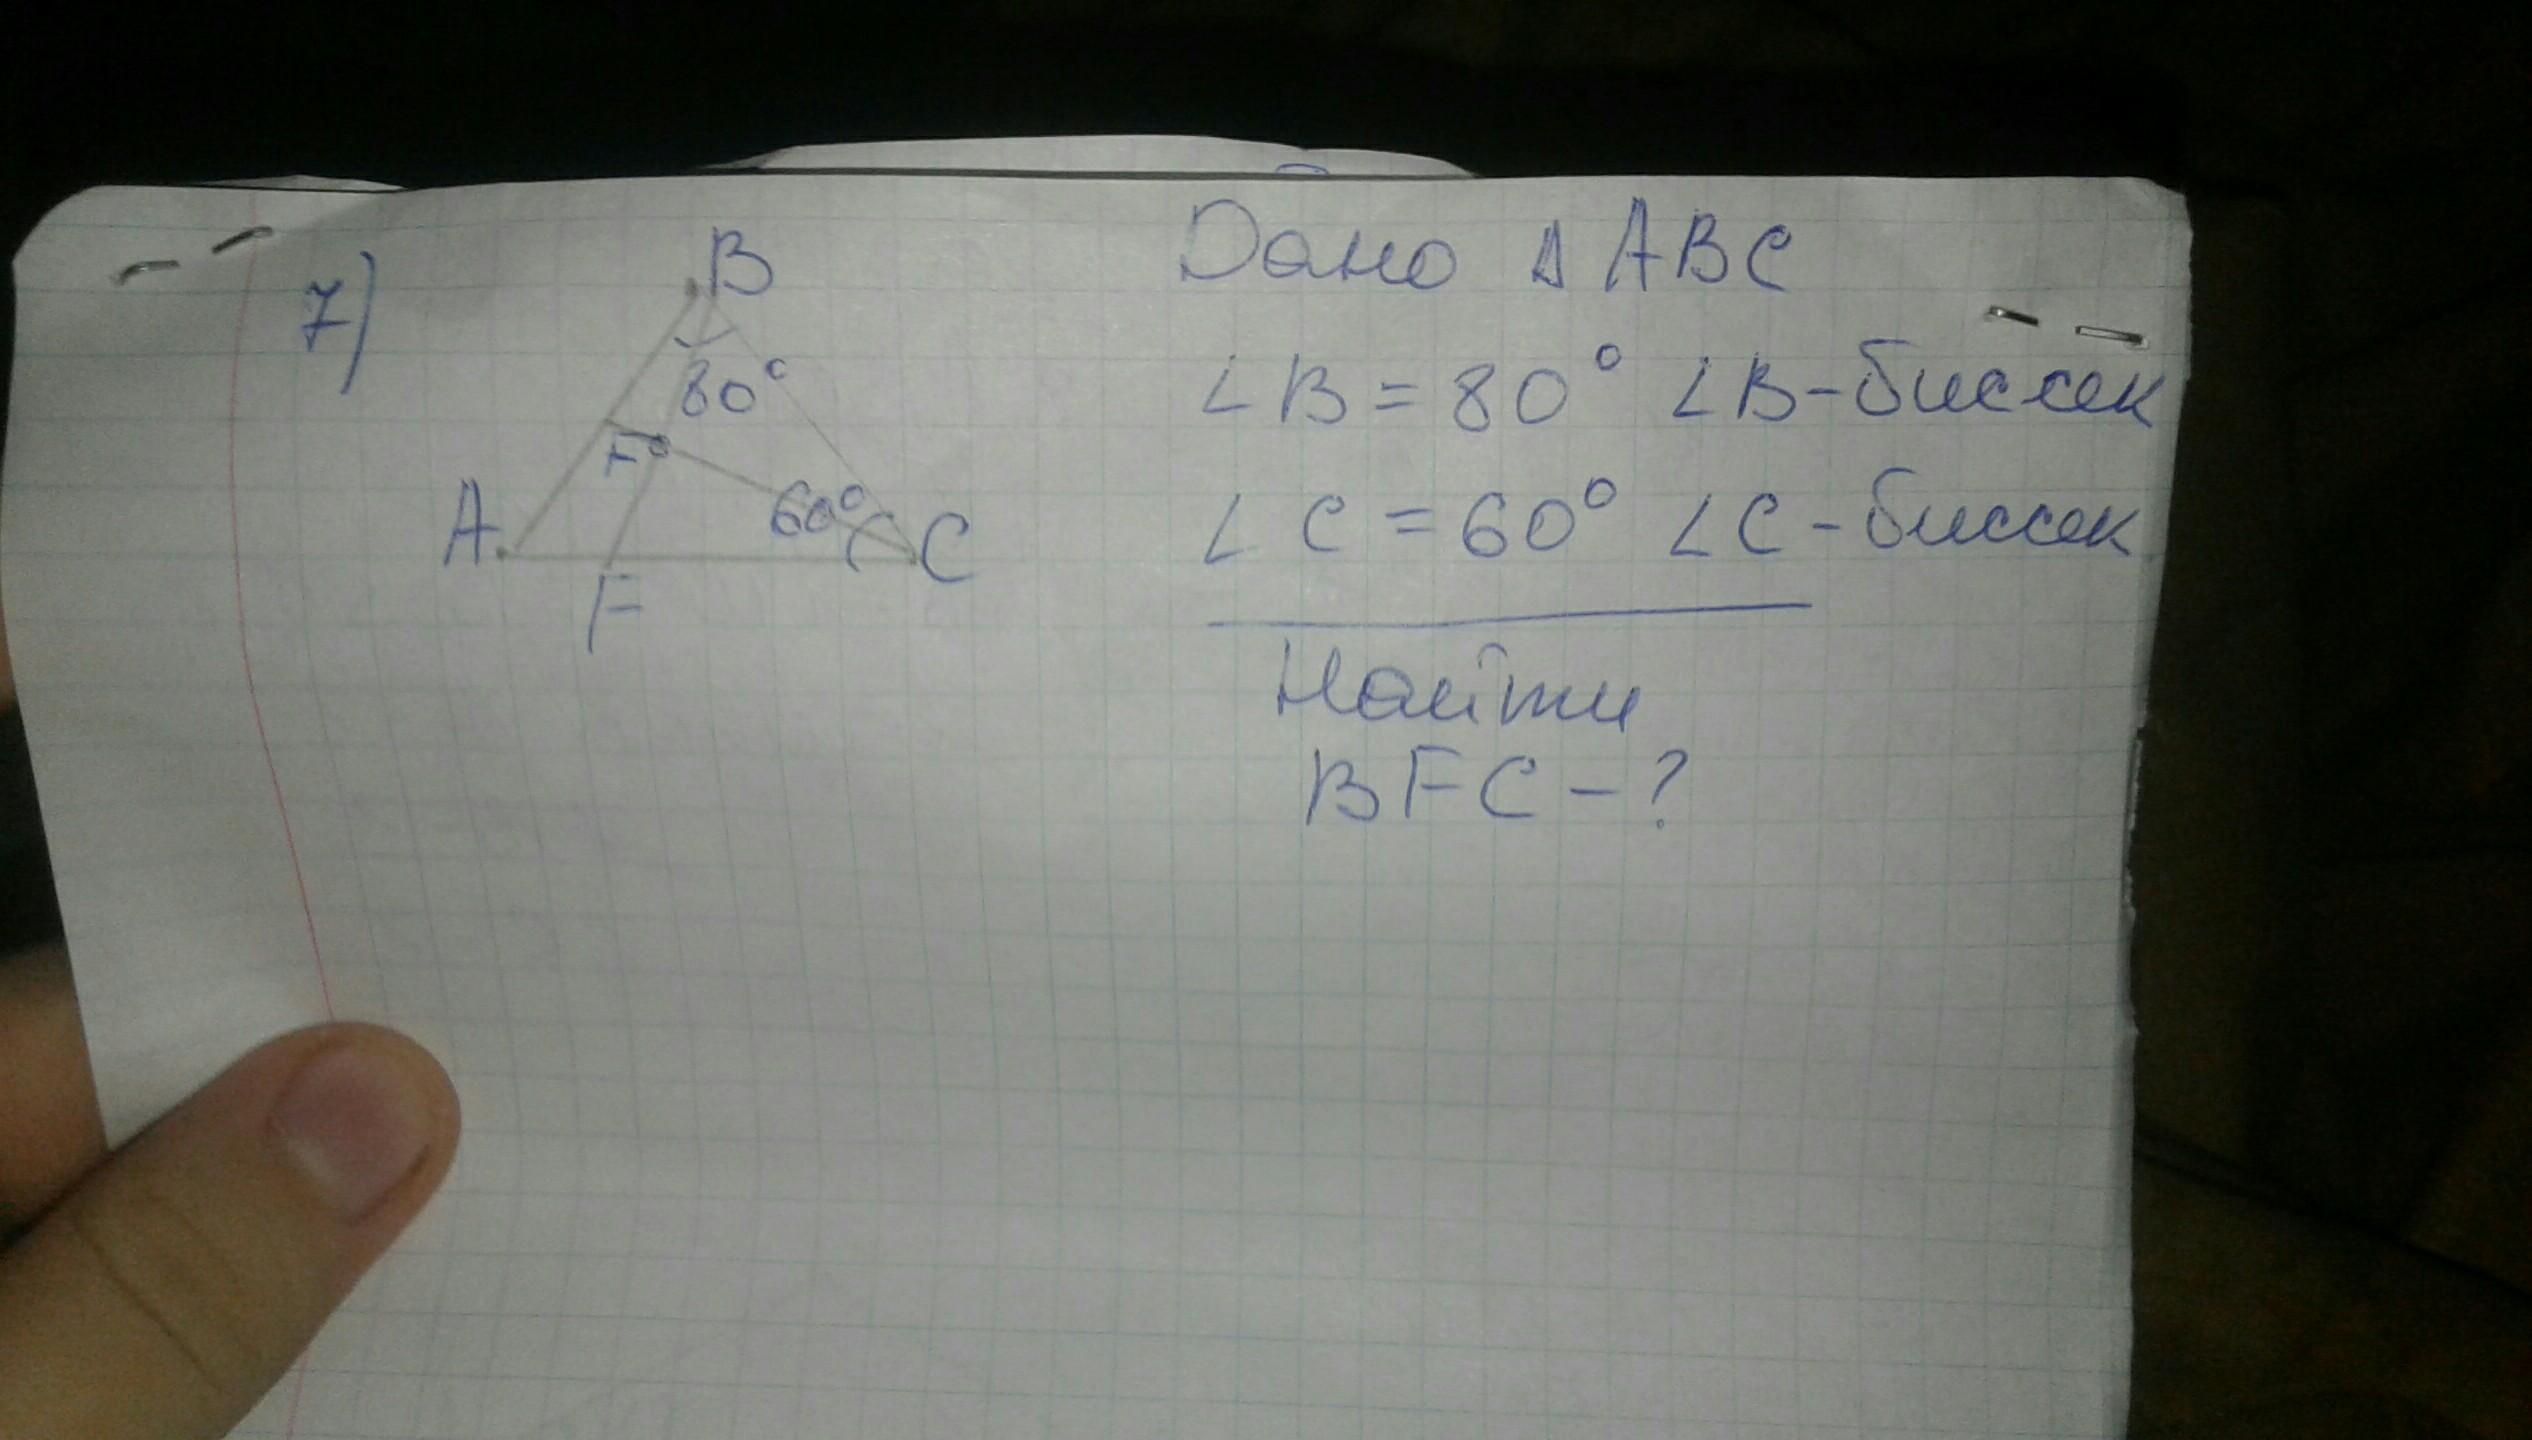 7)
B
80°
F
60°
A
C
F
Дано Δ ABC
∠B = 80° ∠B - биссек
∠C = 60° ∠C - биссек
Найти
BFC - ?